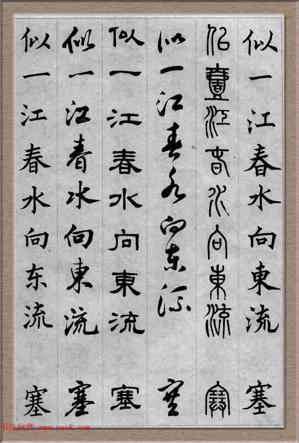 似一江春水向東流 塞
似壹江春水向東流 塞
似一江春水向东流 塞
似一江春水向東流 塞
似一江春水向東流 塞
似一江春水向东流 塞